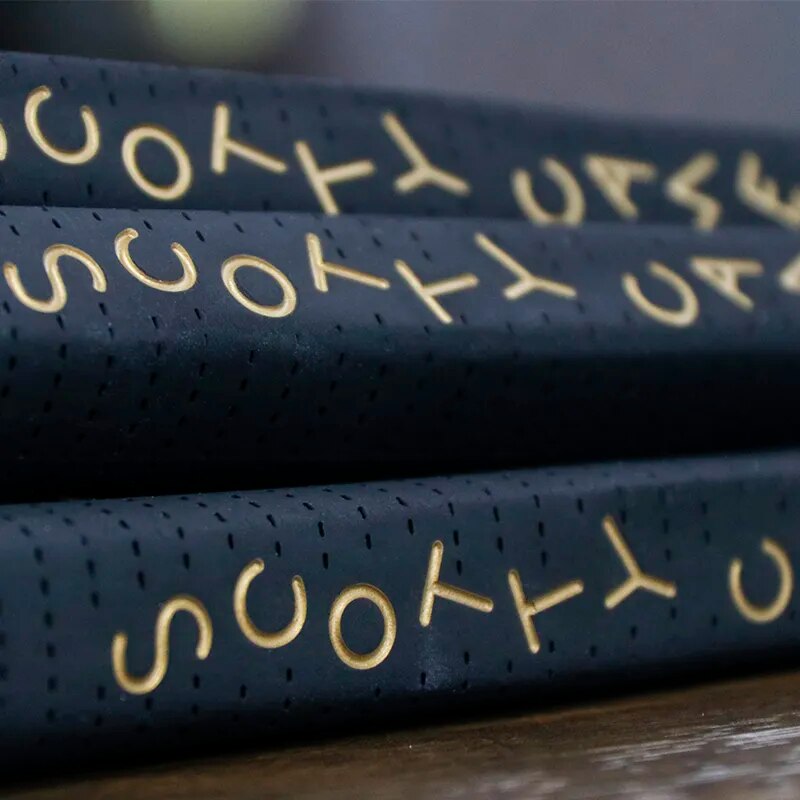 SCOTTY CASE
SCOTTY CA
SCOTTY C